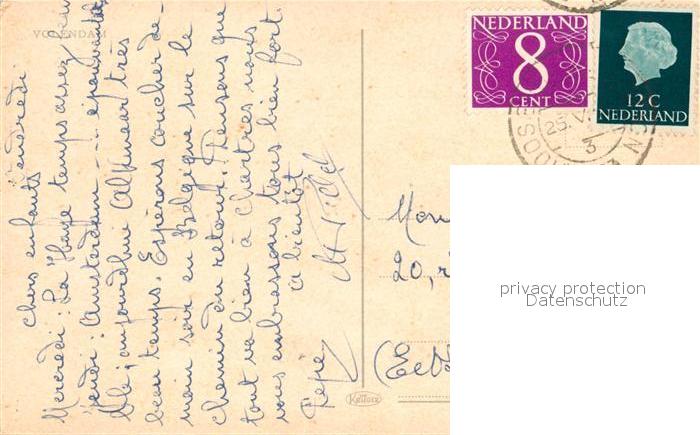 VOLENDAM
Vendredi
chers enfants
Mercredi : La Haye temps assez beau
jeudi : Amsterdam -- épouvanta
ble, aujourdhui Alkmaar très
beau temps. Espérons coucher de-
main soir en Belgique sur le
chemin du retour. Pensons que
tout va bien à Chartres nous
vous embrassons tous bien fort.
a bientôt
Pépé
NEDERLAND
8
CENT
12 C
NEDERLAND
25. V
3
Mon
20, r
(Ee
Kellore
privacy protection
Datenschutz